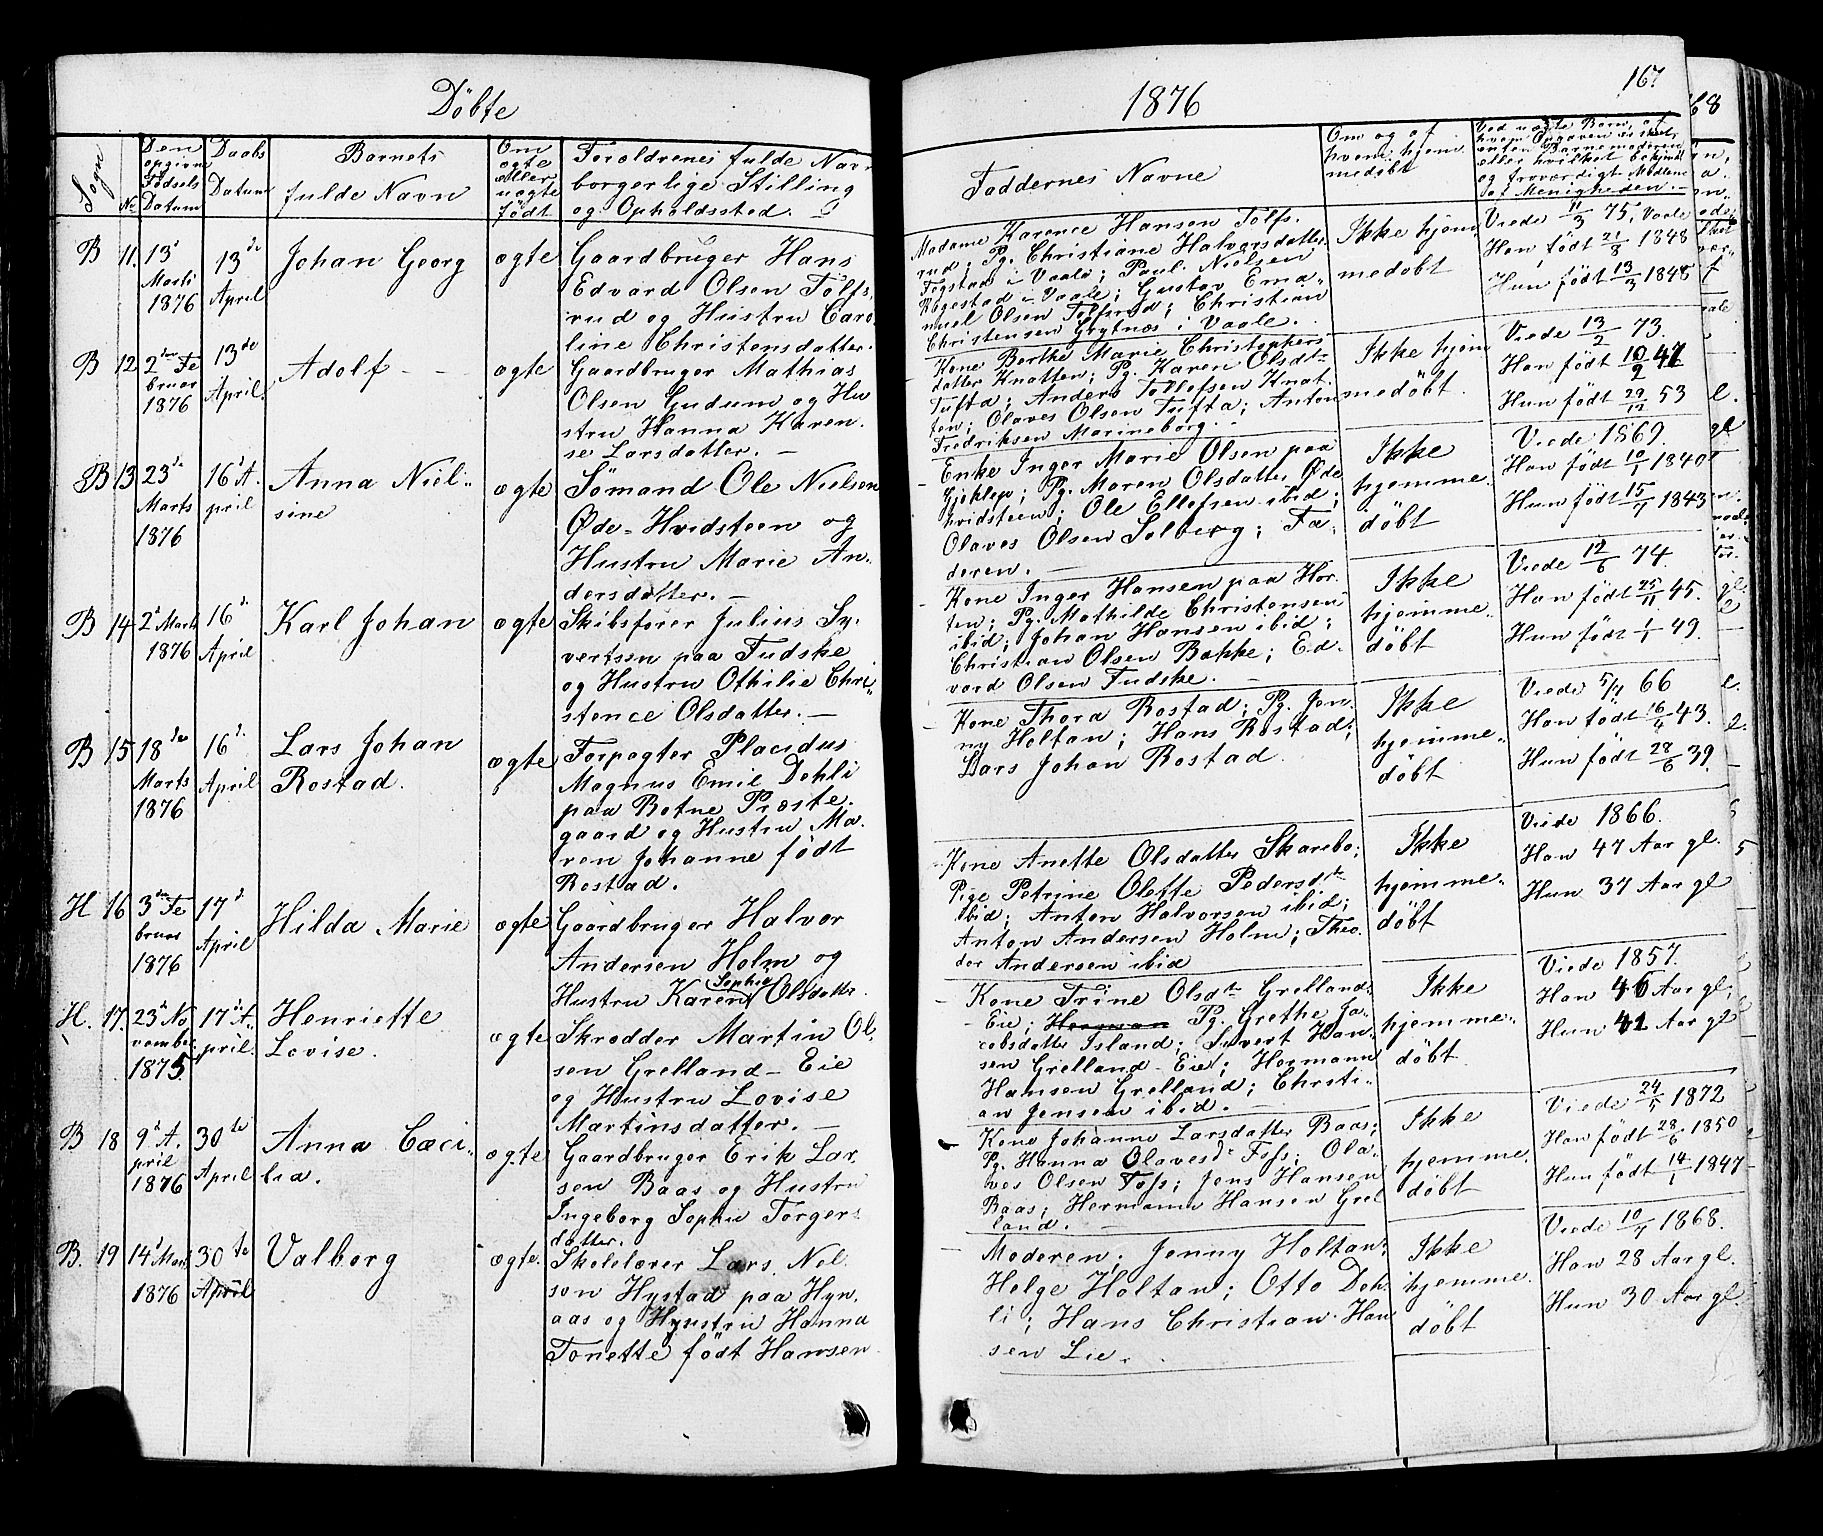 Döbte
1876
167.
68
Sogn
No
Den opgivne Födsels Datum
Daabs Datum
Barnets fulde Navn
Om ægte eller uægte födt
Forældrenes fulde Navn borgerlige Stilling og Opholdssted.
Faddernes Navne
Om og af hvem hjemmedöbt
B 11. 13' Marti 1876
13de April
Johan Georg
ægte
Gaardbruger Hans
Edvard Olsen Tölfs
rud og Hustru Caro
line Christensdatter.
Madame Karence Hansen Tölfs.
rud; Pg. Christiane Halvorsdatter
Fogstad i Vaale; Paul Nielsen
Rogestad i Vaale; Gustav Ema
nuel Olsen Tolfsrud; Christian
Christensen Grytnæs i Vaale.
Ikke hjem
medöbt
Viede 11/3 75, Vaale
Han födt 21/8 1848
Hun födt 13/3 1848
B 12 2den Februar 1876
13de April.
Adolf
ægte
Gaardbruger Mathias
Olsen Gudum og Hu
stru Hanna Karen.
se Larsdatter. —
Kone Berthe Marie Christophers
datter Knatten; Pg. Karen Olsdtr
Tufta; Anders Tollefsen Knat.
ten; Olaves Olsen Tufta; Anton
Fredriksen Marineborg.
Ikke hjem
medöbt.
Viede 13/2 73.
Han födt 10/2 47
Hun födt 29/12 53
B 13 23de Marts 1876
16' April
Anna Niel..
sine
ægte
Sömand Ole Nielsen
Øde-Hvidsteen og
Hustru Marie An.
dersdatter. —
Enke Inger Marie Olsen paa
Gjeklep; Pg. Maren Olsdatter Øde
hvidsteen; Ole Ellefsen ibid;
Olaves Olsen Solberg; Fa.
deren.
Ikke
hjemme.
döbt
Viede 1869.
Han födt 10/1 1840
Hun födt 15/7 1843
B 14 2' Marts 1876
16' April
Karl Johan
ægte
Skibsförer Julius Sy.
vertsen paa Tudske
og Hustru Othilie Chri
stence Olsdatter. —
Kone Inger Hansen paa Hor.
ten; Pg. Mathilde Christensen
ibid; Johan Hansen ibid;
Christian Olsen Bakke; Ed.
vard Olsen Tudske.
Ikke
hjemme..
döbt
Viede 12/6 74.
Han födt 25/11 45.
Hun födt 1/1 49.
B 15 18de Marts 1876
16' April
Lars Johan
Rostad.
ægte
Forpagter Placidus
Magnus Emil Dehli
paa Botne Præste.
gaard og Hustru Ma.
ren Johanne födt
Rostad.
Kone Thora Rostad; Pg. Jen.
ny Holtan; Hans Rostad;
Lars Johan Rostad
Ikke
hjemme..
döbt
Viede 5/4 66
Han födt 16/9 43.
Hun födt 28/6 39.
H 16 3den Februar 1876
17' April
Hilda Marie
ægte
Gaardbruger Halvor
Andersen Holm og
Hustru Karen Sophie Olsdatter.
Kone Anette Olsdatter Skarebo;
Pige Petrine Olette Pedersdtr
ibid; Anton Halvorsen ibid;
Anton Andersen Holm; Theo.
dor Andersen ibid
Ikke
hjemme..
döbt
Viede 1866.
Han 47 Aar gl.
Hun 37 Aar gl
H. 17. 23' November 1875.
17' April.
Henriette
Lovise.
ægte
Skrædder Martin Ol.
sen Grelland - Eie
og Hustru Lovise
Martinsdatter. —
Kone Trine Olsdtr Grelland
Eie; Herman Pg. Grethe Ja.
cobsdatter Island; Sivert Han.
sen Grelland Eie; Hermann
Hansen Grelland; Christi..
an Jensen ibid.
Ikke
hjemme..
döbt
Viede 1857.
Han 46 Aar gl.
Hun 41 Aar gl
B 18 9' April 1876
30te April
Anna Cæci..
lia.
ægte
Gaardbruger Erik Lar.
sen Baas og Hustru
Ingeborg Sophie Torgers
datter.
Kone Johanne Larsdatter Baas;
Pg. Hanna Olavesdr Foss; Ola.
ves Olsen Foss; Jens Hansen
Baas; Hermann Hansen Grel
land.
Ikke
hjemme.
döbt
Viede 24/5 1872
Han födt 28/6 1850
Hun födt 14/1 1847
B. 19 14' Marts 1876
30te April
Valborg
ægte.
Skolelærer Lars Nel.
son Hystad paa Hyn.
aas og Hustru Hanna
Tonette födt Hansen
Moderen; Jenny Holtan;
Helge Holtan; Otto Deh
li; Hans Christian Han
sen Lie.
Ikke
hjemme.
döbt
Viede 10/7 1868.
Han 28 Aar gl.
Hun 30 Aar gl.